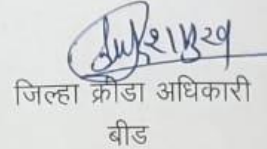 जिल्हा क्रीडा अधिकारी
बीड